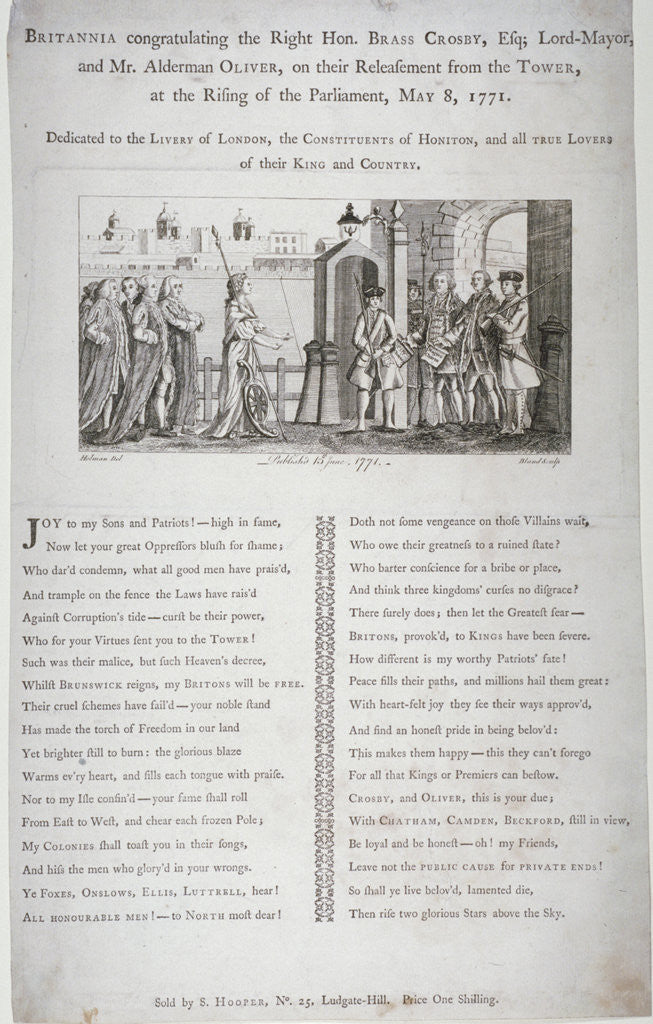 BRITANNIA congratulating the Right Hon. BRASS CROSBY, Eſq; Lord-Mayor,
and Mr. Alderman OLIVER, on their Releaſement from the TOWER,
at the Riſing of the Parliament, MAY 8, 1771.
Dedicated to the LIVERY of LONDON, the CONSTITUENTS of HONITON, and all TRUE LOVERS
of their KING and COUNTRY.
Holman Del
Publish'd 13 June. 1771.
Bland Sculp
JOY to my Sons and Patriots! — high in fame,
Now let your great Oppreſſors bluſh for ſhame;
Who dar'd condemn, what all good men have prais'd,
And trample on the fence the Laws have rais'd
Againſt Corruption's tide — curſt be their power,
Who for your Virtues ſent you to the TOWER!
Such was their malice, but ſuch Heaven's decree,
Whilſt BRUNSWICK reigns, my BRITONS will be FREE.
Their cruel ſchemes have fail'd — your noble ſtand
Has made the torch of Freedom in our land
Yet brighter ſtill to burn: the glorious blaze
Warms ev'ry heart, and fills each tongue with praiſe.
Nor to my Iſle confin'd — your fame ſhall roll
From Eaſt to Weſt, and chear each frozen Pole;
My COLONIES ſhall toaſt you in their ſongs,
And hiſs the men who glory'd in your wrongs.
Ye FOXES, ONSLOWS, ELLIS, LUTTRELL, hear!
ALL HONOURABLE MEN! — to NORTH moſt dear!
Doth not ſome vengeance on thoſe Villains wait,
Who owe their greatneſs to a ruined ſtate?
Who barter conſcience for a bribe or place,
And think three kingdoms' curſes no diſgrace?
There ſurely does; then let the Greateſt fear —
BRITONS, provok'd, to KINGS have been ſevere.
How different is my worthy Patriots' fate!
Peace fills their paths, and millions hail them great:
With heart-felt joy they ſee their ways approv'd,
And find an honeſt pride in being belov'd:
This makes them happy — this they can't forego
For all that Kings or Premiers can beſtow.
CROSBY, and OLIVER, this is your due;
With CHATHAM, CAMDEN, BECKFORD, ſtill in view,
Be loyal and be honeſt — oh! my Friends,
Leave not the PUBLIC CAUSE for PRIVATE ENDS!
So ſhall ye live belov'd, lamented die,
Then riſe two glorious Stars above the Sky.
Sold by S. HOOPER, Nº. 25, Ludgate-Hill. Price One Shilling.